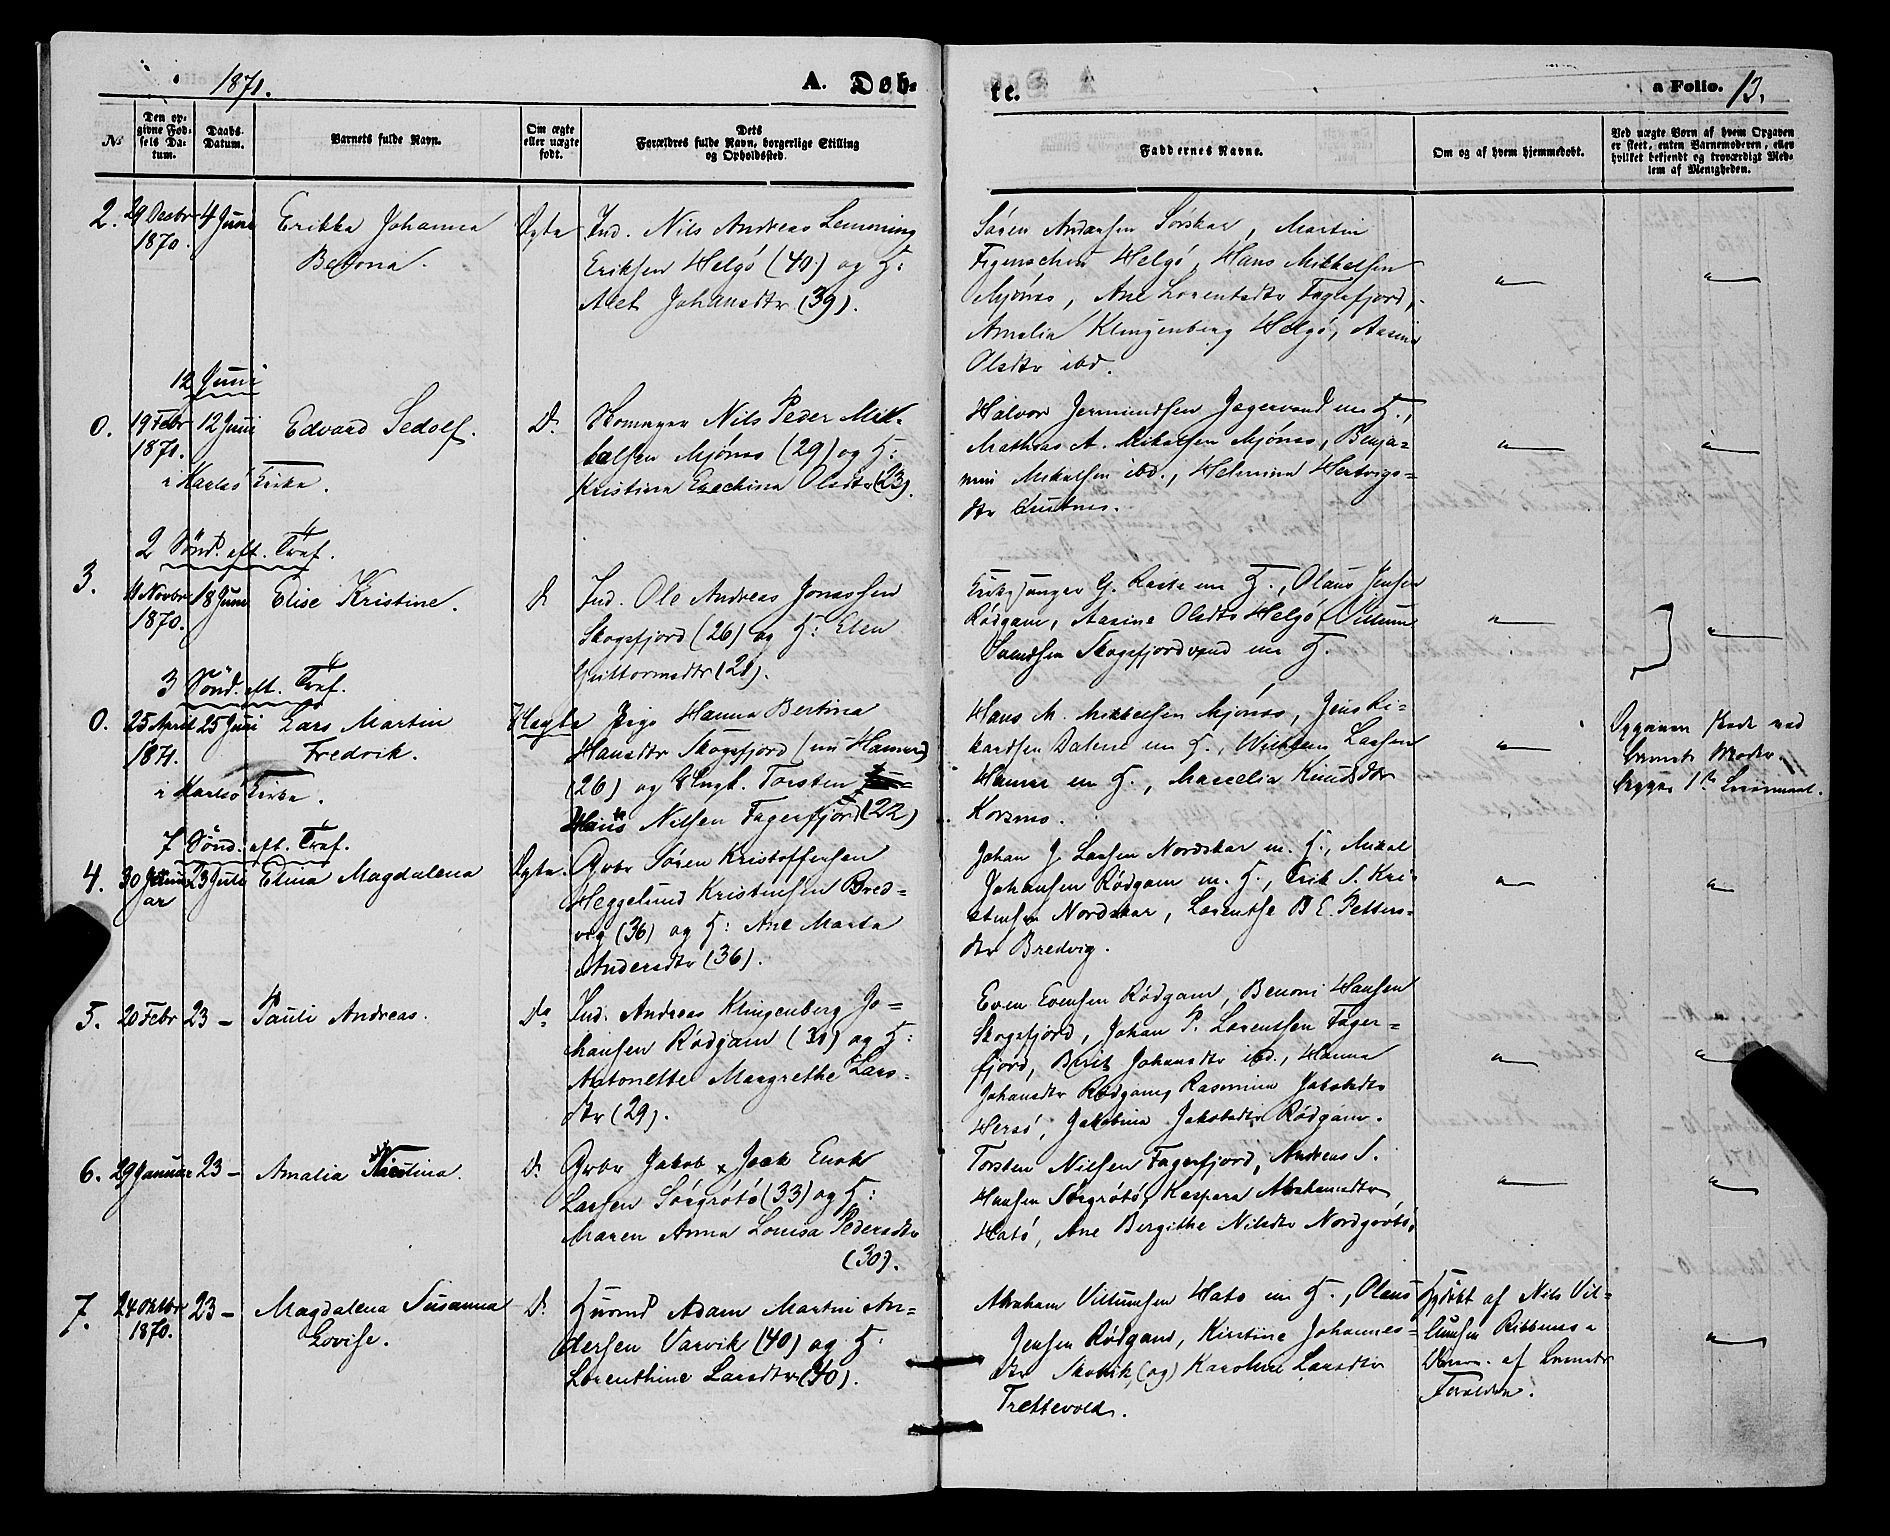 1871.
A. Døb-
te.
a Folio. 13.
№
Den opgivne Fødsels Datum.
Daabs-Datum.
Barnets fulde Navn.
Om ægte eller uægte født.
Dets Forældres fulde Navn, borgerlige Stilling og Opholdssted.
Faddernes Navne.
Om og af hvem hjemmedøbt.
Ved uægte Børn af hvem Opgaven er skeet, enten Barnemoderen, eller hvilket bekjendt og troværdigt Medlem af Menigheden.
2.
29 Decbr
1870.
4 Juni
Erikka Johanna
Betona.
Ægte
Ind. Nils Andreas Lemming
Eriksen Helgö (40) og H:
Alet Johansdtr (39).
Sören Andersen Sörskar, Martin
Figenschou Helgö, Hans Mikkelsen
Mjönes, Ane Lorentsdtr Fagefjord,
Amalia Klingenberg Helgö, Aasine
Olsdtr ibd.
12 Juni
0.
19 Febr
1871.
12 Juni
i Karlsö Kirke.
Edvard Sedolf.
Do
Nils Peder Mik-
kalsen Mjönes (29) og H:
Kristina Olsdtr (23).
Halvor Jermundsen Jægervand m H.,
Mathias A. Mikalsen Mjönes, Benja-
min Mikalsen ibd., Helmine Hertvigs-
dtr
2 Sönd. eft. Tref.
3.
4 Novbr
1870.
18 Juni
Elise Kristine.
Do
Ind. Ole Andreas Jonassen
Skogsfjord (26) og H: Elen
Guttormsdtr (21).
Kirkesanger G. m H., Olaus Jensen
Rödgam, Aasine Olsdtr Helgö, Villum
Svendsen Skogsfjordvand m H.
3 Sönd. eft. Tref.
0.
25 April
1871.
25 Juni
i Karlsö Kirke.
Lars Martin
Fredrik.
Uægte
Pige Hanna Bertina
Hansdtr Skogsfjord (nu Hamre)
(26) og Ungk. Torsten
Hans Nilsen Fagerfjord (22)
Hans M. Mikkelsen Mjönes, Jens Ri-
kardsen Dalene m H., Wilhelm Larsen
Hamre m H., Marcelia Knudsdtr
Korsnes.
Opgaven skede ved
Barnets Moder.
Begges 1ste Leiermaal.
7 Sönd. eft. Tref.
4.
30 Janu-
ar
23 Juli
Elina Magdalena
Ægte.
Gbr Sören Kristoffersen
Heggelund Kristensen Bred-
vig (36) og H: Ane Marta
Andersdtr (36).
Johan J. Larsen Nordskar m. H., Mikal
Johansen Rödgam m. H., Erik S. Kri-
stensen Nordskar, Lorentse B E. Petters-
dtr Bredvig.
5.
20 Febr
23 –
Pauli Andreas.
Do
Ind. Andreas Klingenberg Jo-
hansen Rödgam (31) og H:
Antonette Margrethe Lars-
dtr (29).
Even Evensen Rödgam, Benoni Hansen
Skogsfjord, Johan P. Lorentsen Fager-
fjord, Berit Johansdtr ibd., Hanna
Johansdtr Rödgam, Rasmine Jakobsdtr
Hersö, Jakobina Jakobsdtr Rödgam.
6.
29 Januar
23 –
Amalia Kristina.
Do
Gbr Jakob Isak Enok
Larsen Sörgrötö (33) og H:
Maren Anna Lovisa Pedersdtr
(30).
Torsten Nilsen Fagerfjord, Andreas S.
Hansen Sörgrötö, Kaspera Abrahamsdtr
Hatö, Ane Bergithe Nilsdtr Nordgrötö.
7.
24 Oktbr
1870.
23 –
Magdalena Susanna
Lovise.
Do
Huusmd Adam Martin An-
dersen Vasvik (40) og H:
Lorenthine Larsdtr (40).
Abraham Villumsen Hato m H., Olaus
Jensen Rödgam, Kirstine Johannes-
dtr Skolvik, (og) Karoline Larsdtr
Trettevold.
Hjdøbt af Nils Vil-
lumsen
af Barnets
Forældre.